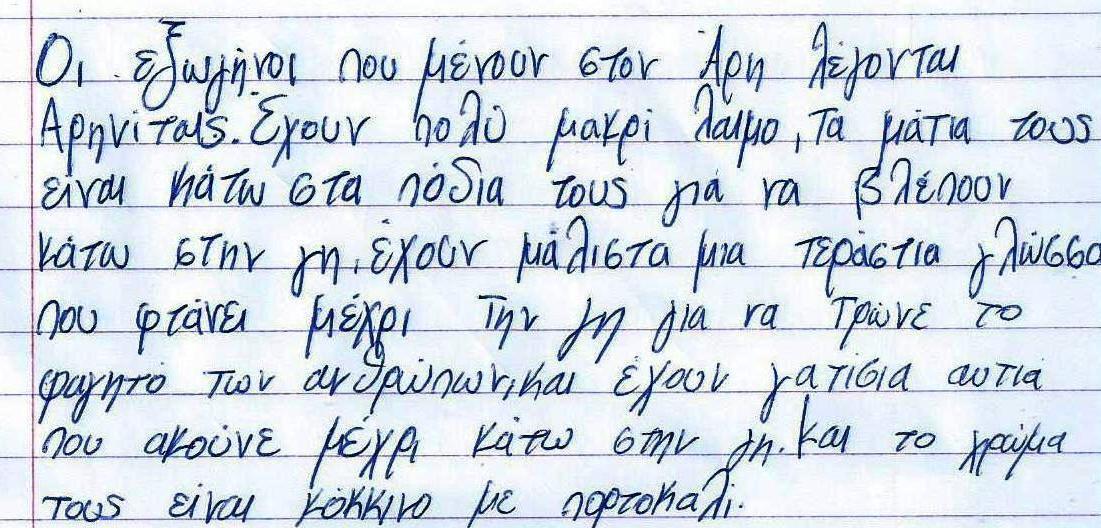 Οι εξωγήινοι που μένουν στον Άρη λέγονται
Αρηνίταις. Έχουν πολύ μακρί λαιμο, τα μάτια τους
είναι κάτω στα πόδια τους γιά να βλέπουν
κάτω στην γη, έχουν μάλιστα μια τεράστια γλώσσα
που φτάνει μέχρι την γη για να τρώνε το
φαγητό των ανθρώπων, και έχουν γατίσια αυτιά
που ακούνε μέχρι κάτω στην γη. και το χρώμα
τους είναι κόκκινο με πορτοκαλί.